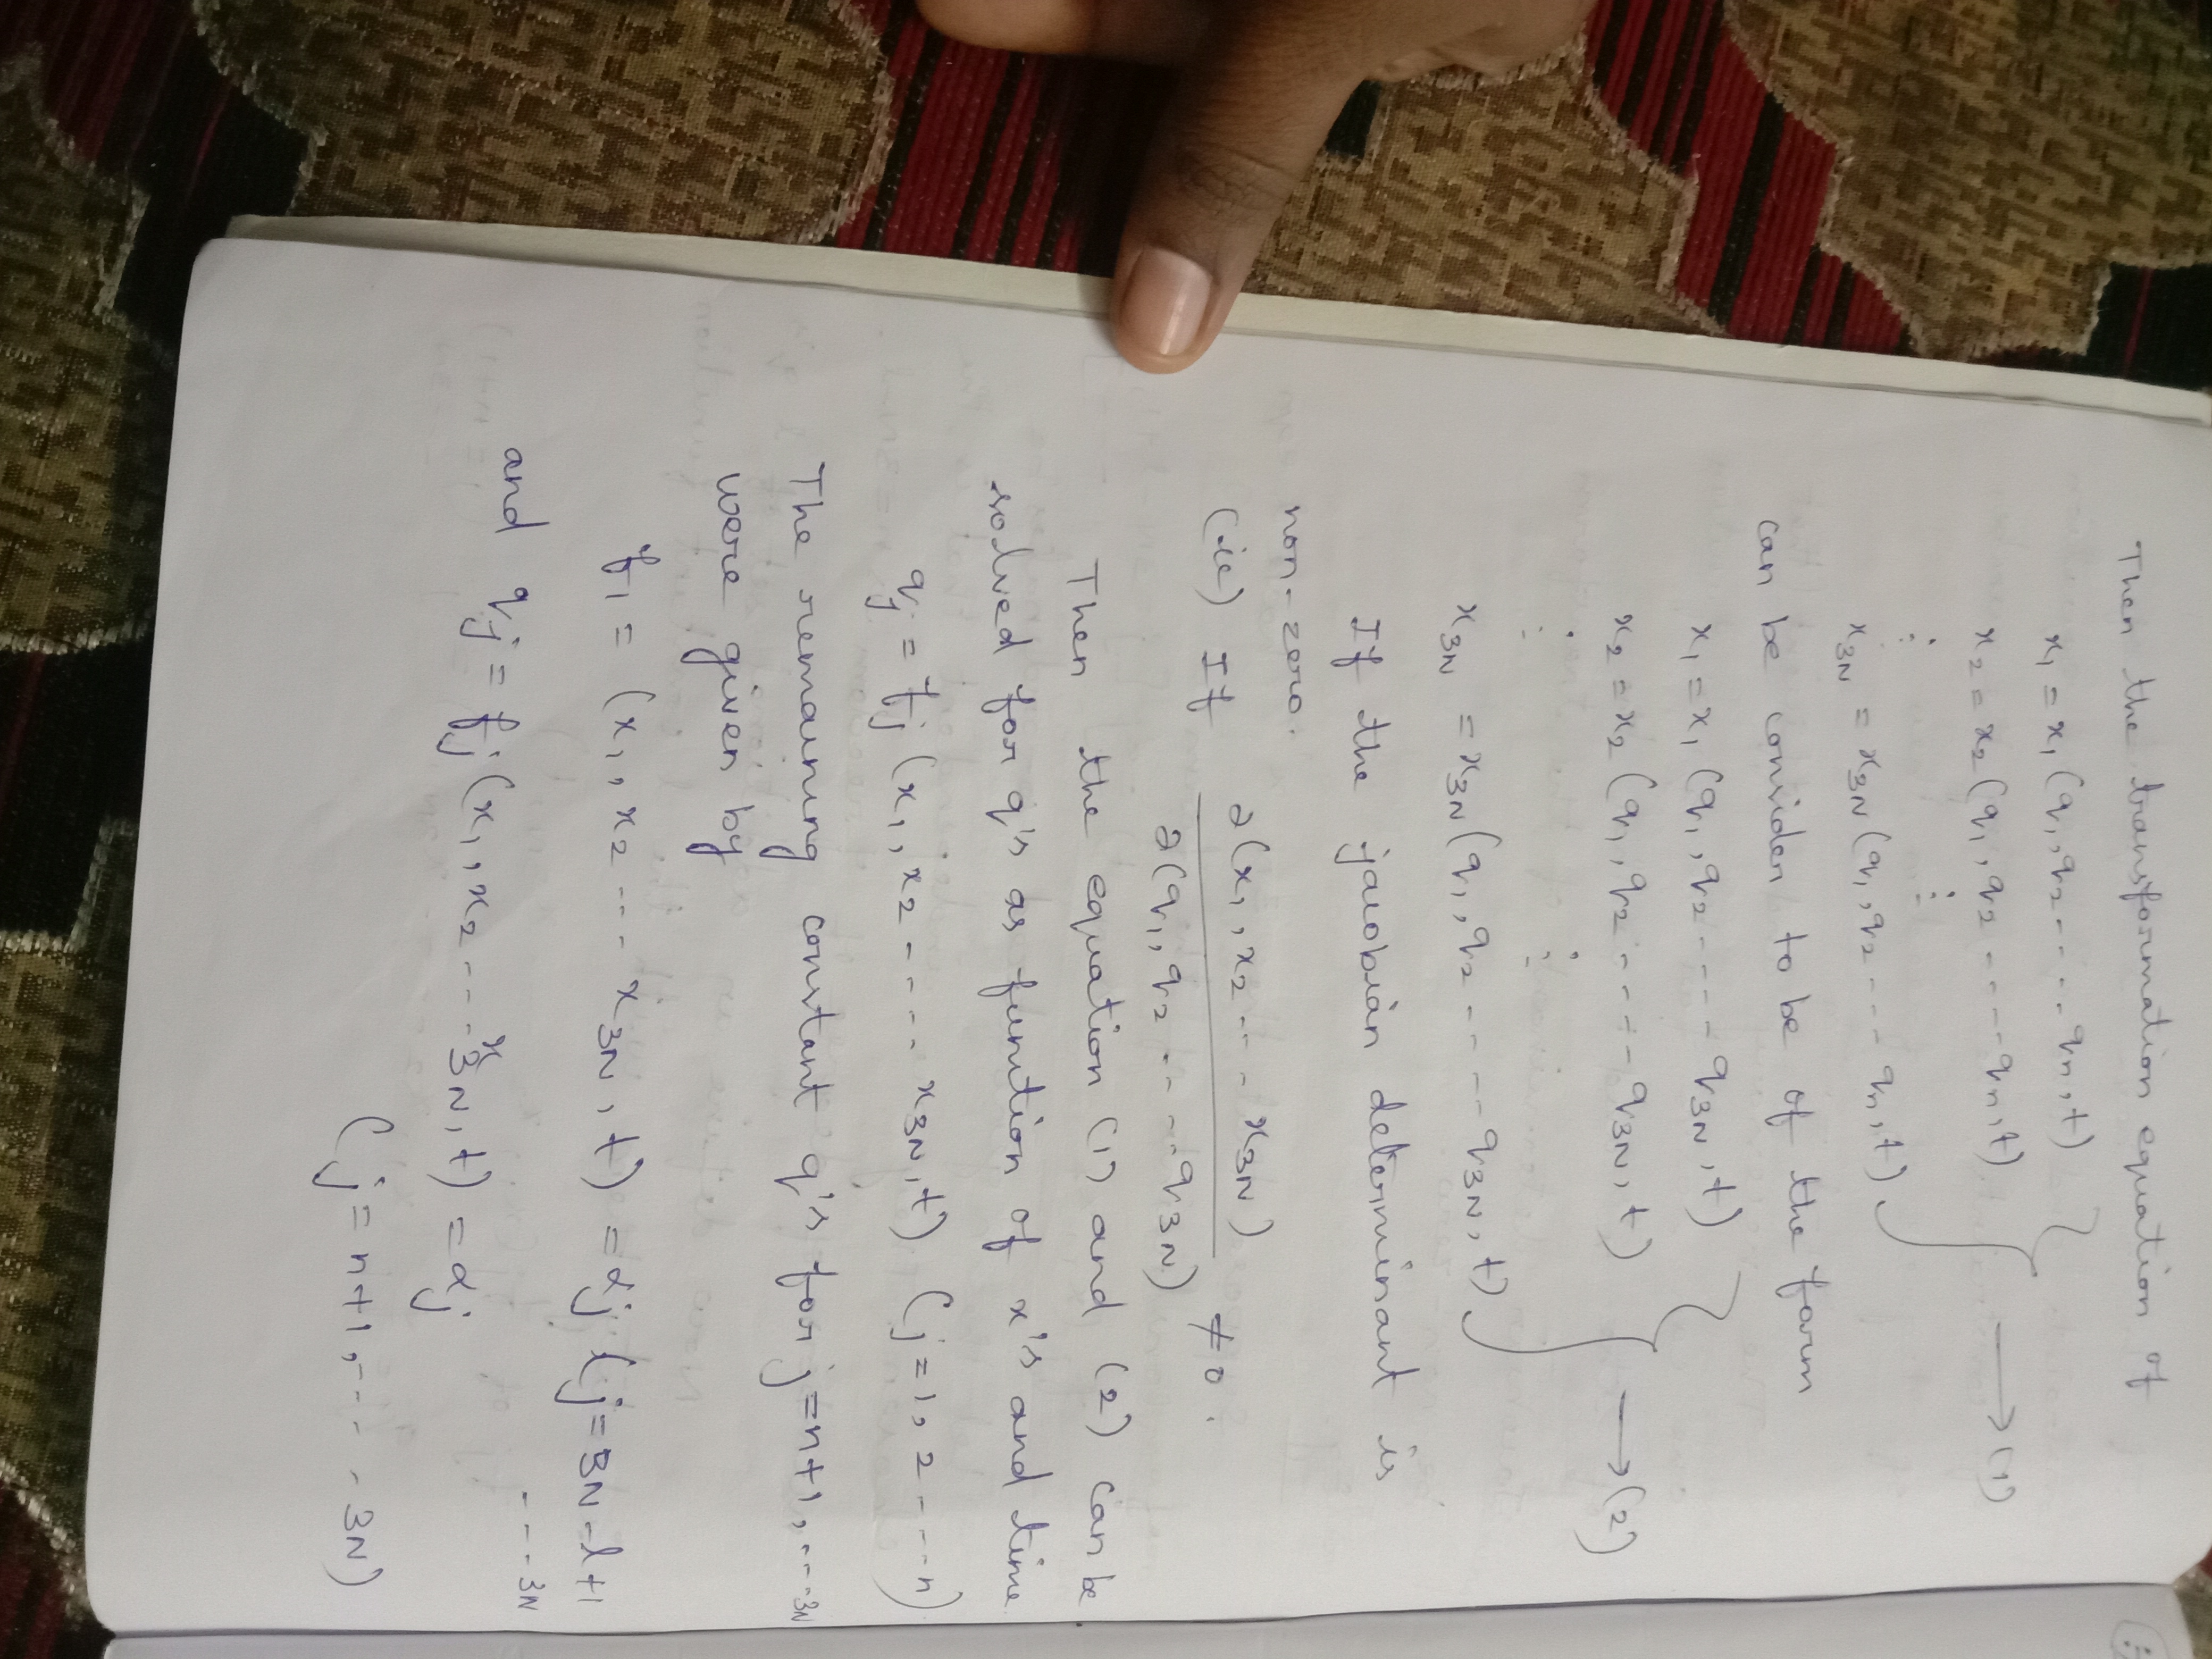 Then the transformation equation of
x₁ = x₁ (q₁, q₂ ..... qₙ, t)
x₂ = x₂ (q₁, q₂ ..... qₙ, t)
⋮ ⋮ → (1)
x₃N = x₃N (q₁, q₂ .... qₙ, t)
can be consider to be of the form
x₁ = x₁ (q₁, q₂ .... q₃N, t)
x₂ = x₂ (q₁, q₂ .... q₃N, t) → (2)
⋮ ⋮
x₃N = x₃N (q₁, q₂ ..... q₃N, t)
If the jacobian determinant is
non-zero.
(ie) If ∂(x₁, x₂ .... x₃N) / ∂(q₁, q₂ .... q₃N) ≠ 0.
Then the equation (1) and (2) can be
solved for q's as function of x's and time
qj = fj (x₁, x₂ ..... x₃N, t) (j = 1, 2 .... n)
The remaining constant q's for j = n+1, ... 3N
were given by
f₁ = (x₁, x₂ .... x₃N, t) = αj, (j = 3N - l + 1
.... 3N
and qj = fj (x₁, x₂ .... x₃N, t) = αj
(j = n+1, .... 3N)